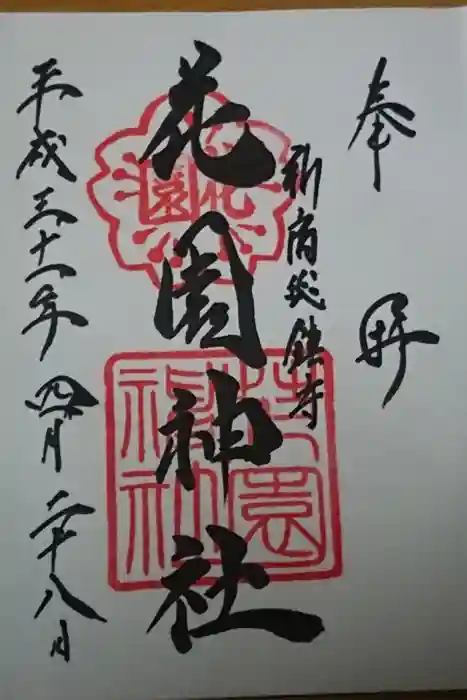 奉拝
新宿総鎮守
花園神社
平成三十一年四月二十八日
花園
花園神社